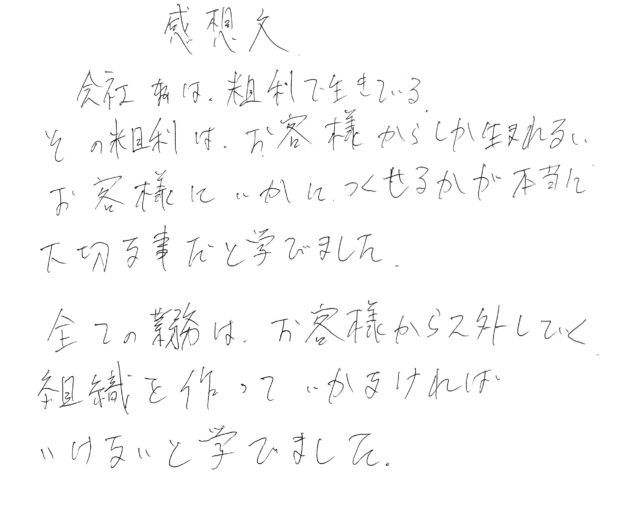 感想文
会社は、粗利で生きている
その粗利は、お客様からしか生まれない
お客様にいかに、つくせるかが本当に
大切な事だと学びました。
全ての業務は、お客様からス外していく
組織を作っていかなければ
いけないと学びました。